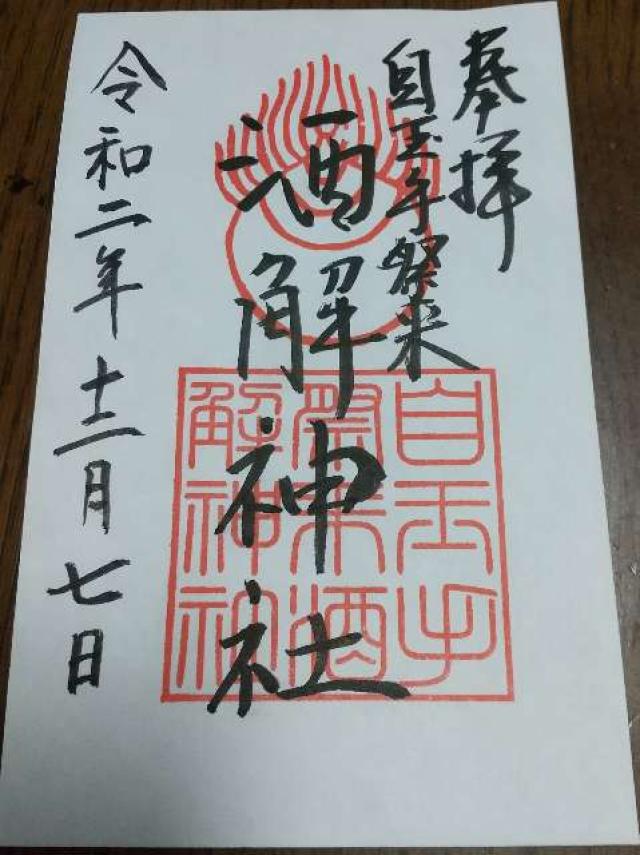 奉拝
自玉手祭来
酒解神社
令和二年十二月七日
自玉手
祭来酒
解神社